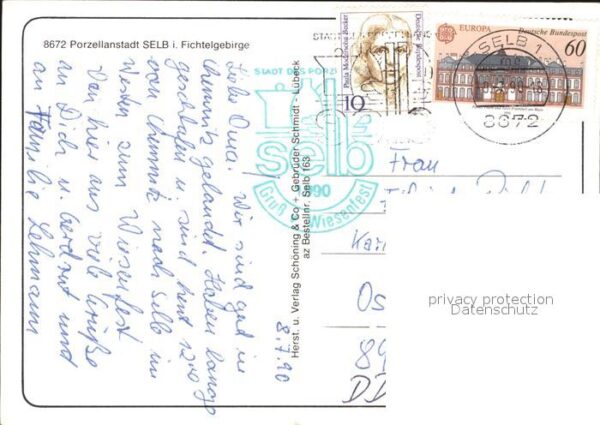 8672 Porzellanstadt SELB i. Fichtelgebirge
8.7.90
Liebe Oma! Wir sind gut in
Chemnitz gelandet. Haben lange
geschlafen u. sind heut 12.00
von Chemnitz nach Selb im
Westen zum Wiesenfest
Von hier aus viele Grüße
an Dich u. Gerdraut und
an Familie Lehmann
Herst. u. Verlag Schöning & Co + Gebrüder Schmidt - Lübeck
az Bestellnr. Selb 163
STADT DES PORZ
selb
1990
Gruß Wiesenfest
Paula Modersohn-Becker
Deutsche Bundespost
10
EUROPA
Deutsche Bundespost
60
SELB 1
8672
Frau
Kar
Os
89
DD
privacy protection
Datenschutz